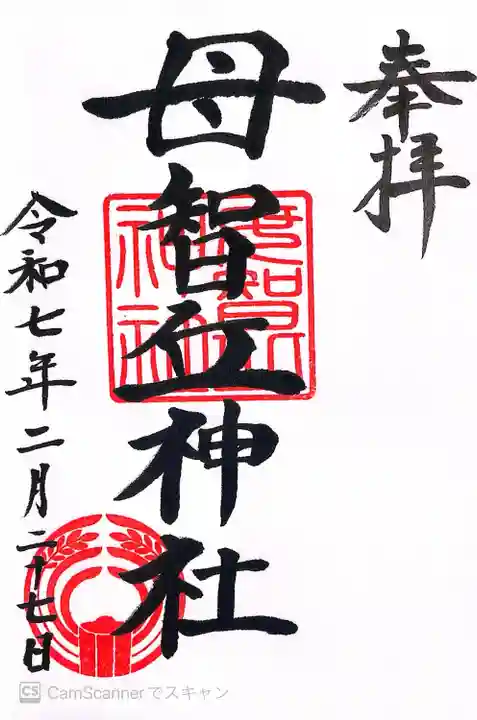 奉拝
母智丘神社
母智丘
神社
令和七年二月二十七日
CS CamScannerでスキャン